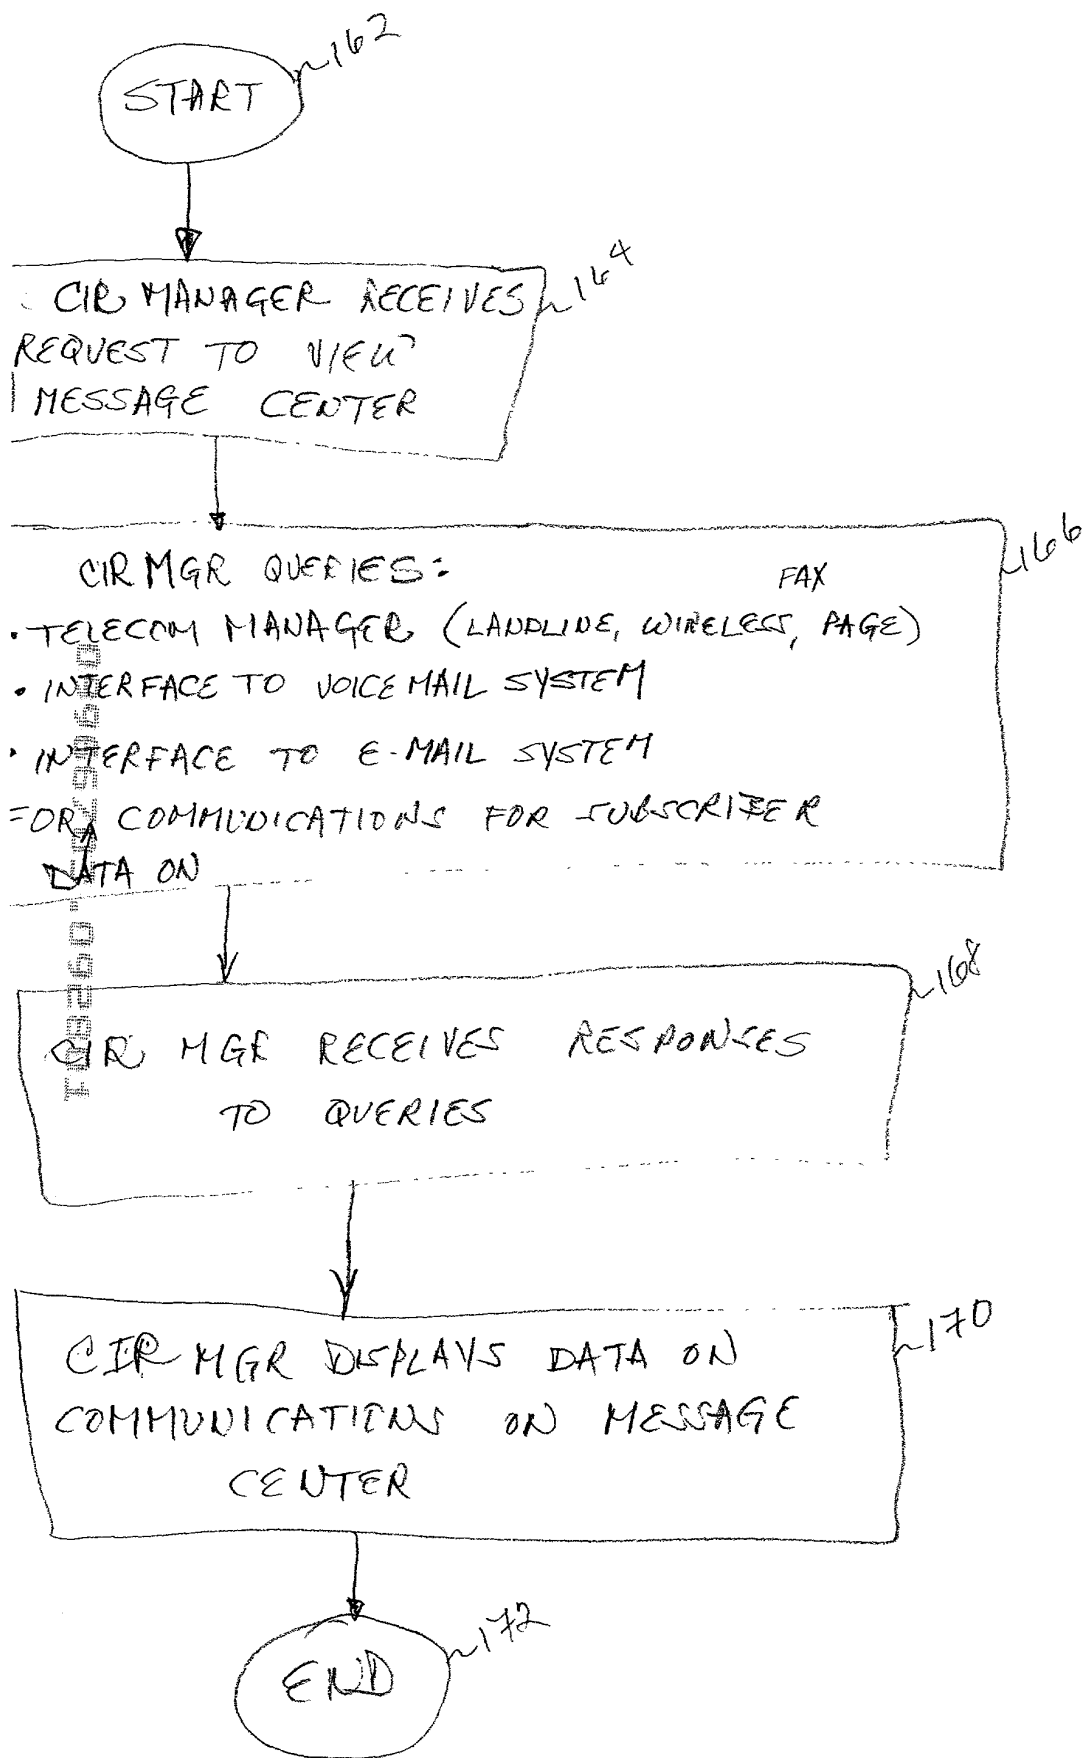 START
162
CIR MANAGER RECEIVES
164
REQUEST TO VIEW
MESSAGE CENTER
166
CIR MGR QUERIES:
FAX
• TELECOM MANAGER (LANDLINE, WIRELESS, PAGE)
• INTERFACE TO VOICE MAIL SYSTEM
• INTERFACE TO E-MAIL SYSTEM
FOR COMMUNICATIONS FOR SUBSCRIBER
DATA ON
168
CIR MGR RECEIVES RESPONSES
TO QUERIES
170
CIR MGR DISPLAYS DATA ON
COMMUNICATIONS ON MESSAGE
CENTER
172
END